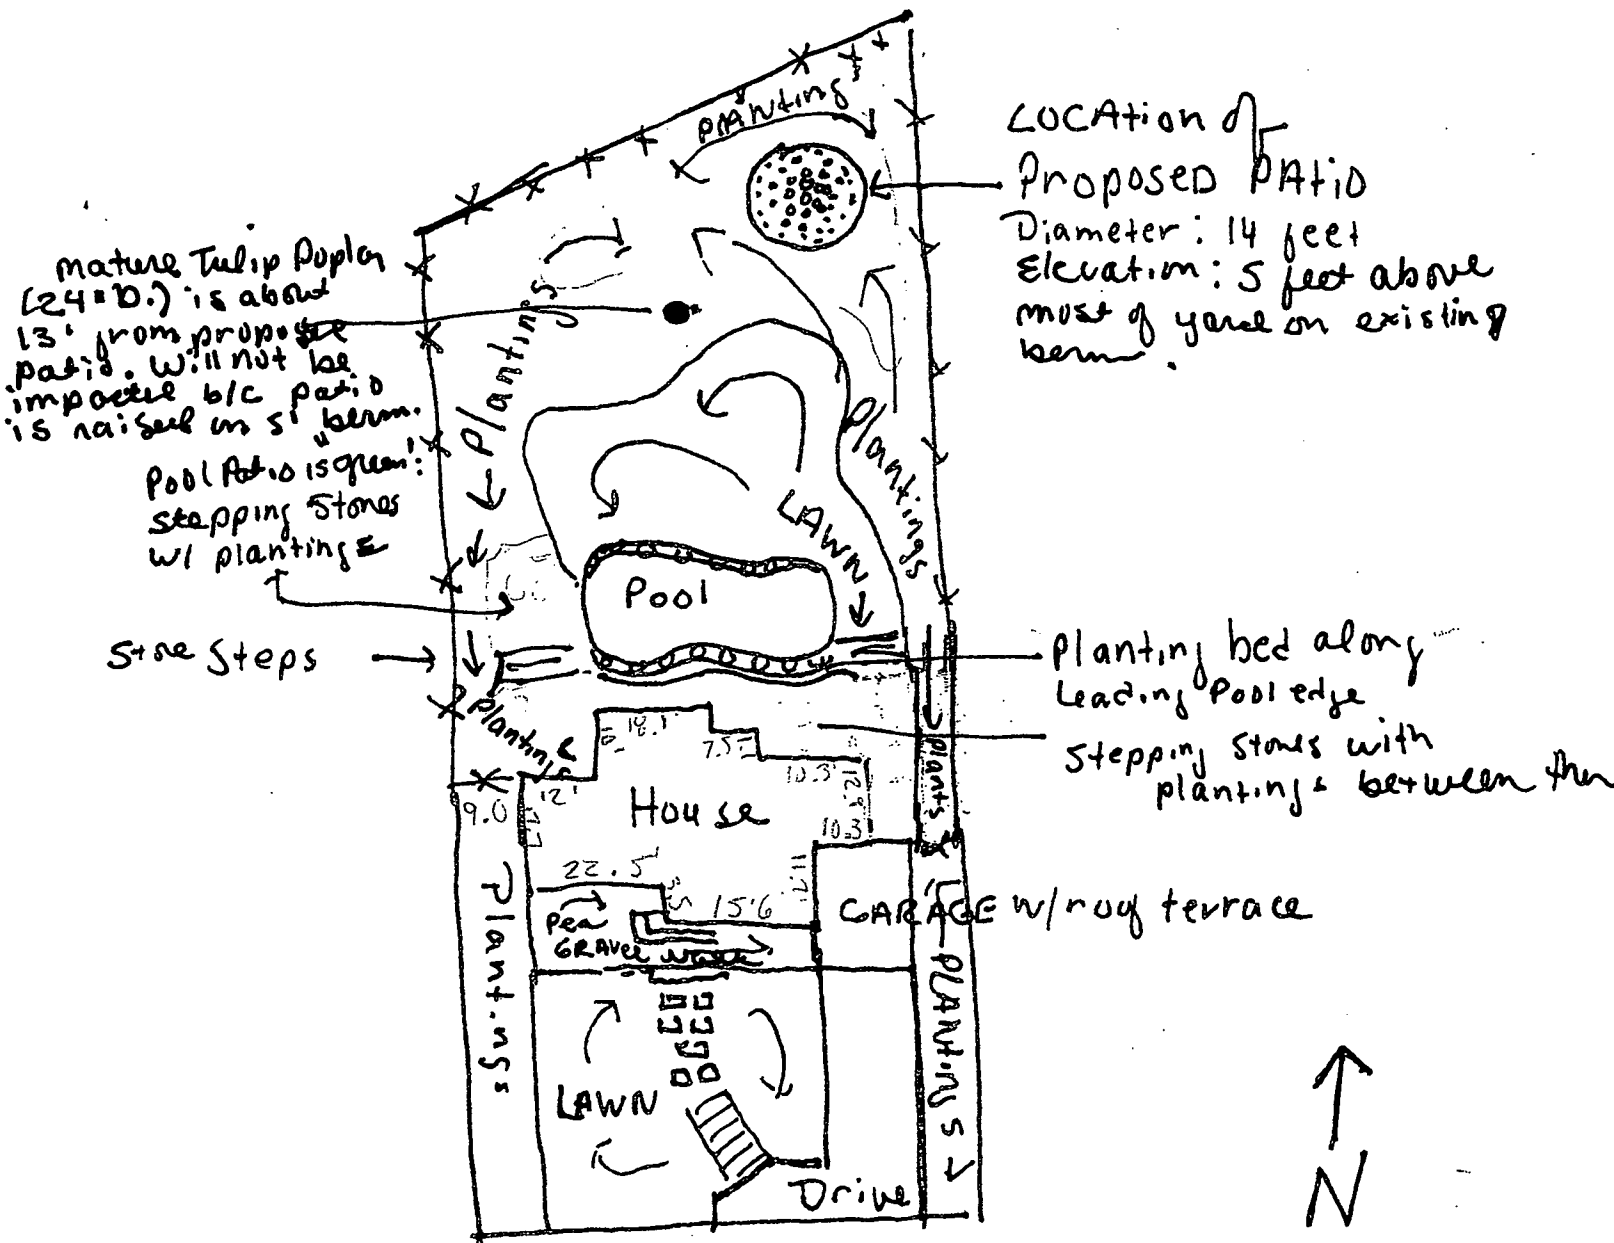 Planting
LOCATION of
Proposed PAtio
Diameter: 14 feet
Elevation: 5 feet above
most of yard on existing
berm.
mature Tulip Poplar
(24" D.) is about
13' from propose
patio. Will not be
impacted b/c patio
is raised on 5' berm.
Plantings
Plantings
Pool Patio is "green":
Stepping Stones
w/ plantings
LAWN
Pool
Stone Steps
Planting bed along
Leading Pool edge
Stepping Stones with
plantings between them
Plantings
plants
18.1
7.5
10.3
12'
9.0
House
12.9
10.3
22.5'
15.6
Pea
GRAVEL WALK
GARAGE w/roof terrace
Plantings
PLANTINGS
LAWN
Drive
N